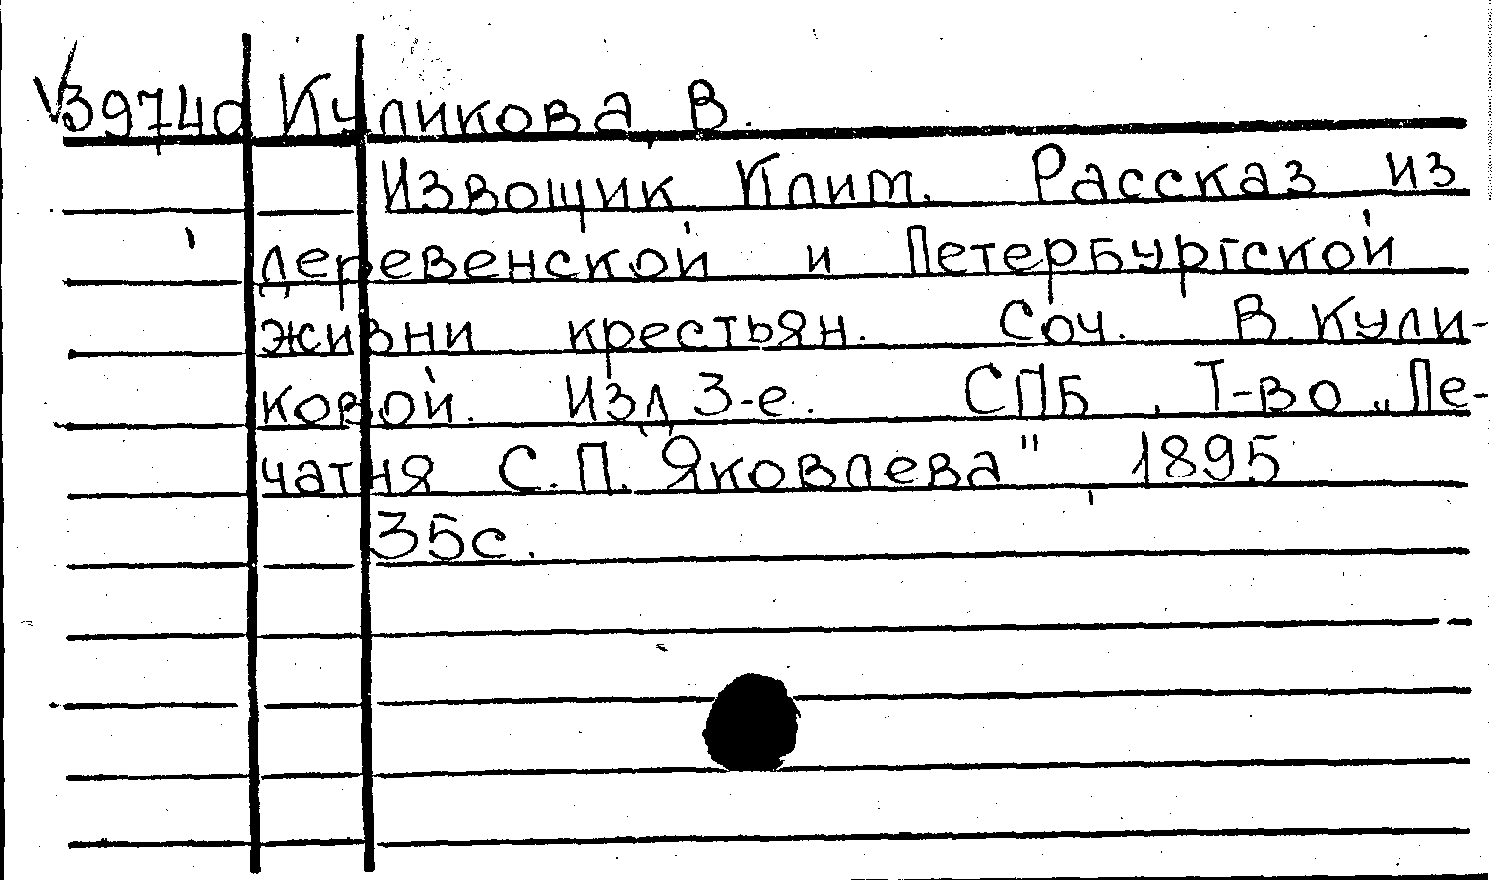 √39740 Куликова, В.
Извощик Клим. Рассказ из
деревенской и Петербургской
жизни крестьян. Соч. В. Кули-
ковой. Изд 3-е. СПБ, Т-во „Пе-
чатня С. П. Яковлева", 1895
35с.